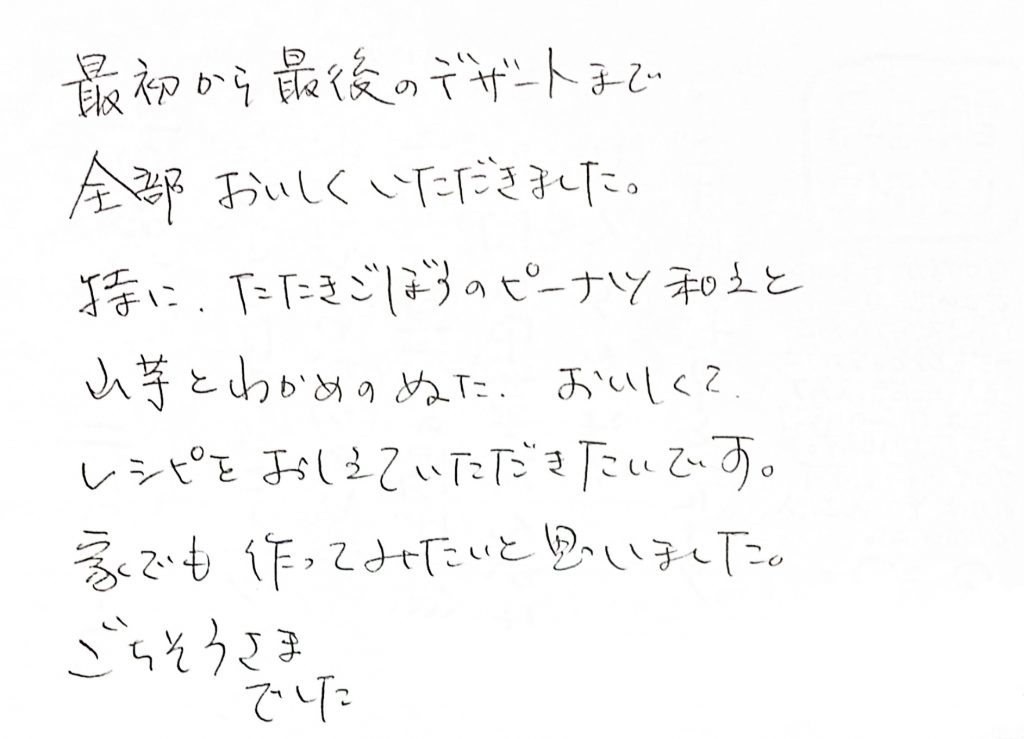 最初から最後のデザートまで
全部 おいしくいただきました。
特に、たたきごぼうのピーナツ和えと
山芋とわかめのぬた、おいしくて
レシピをおしえていただきたいです。
家でも作ってみたいと思いました。
ごちそうさま
でした